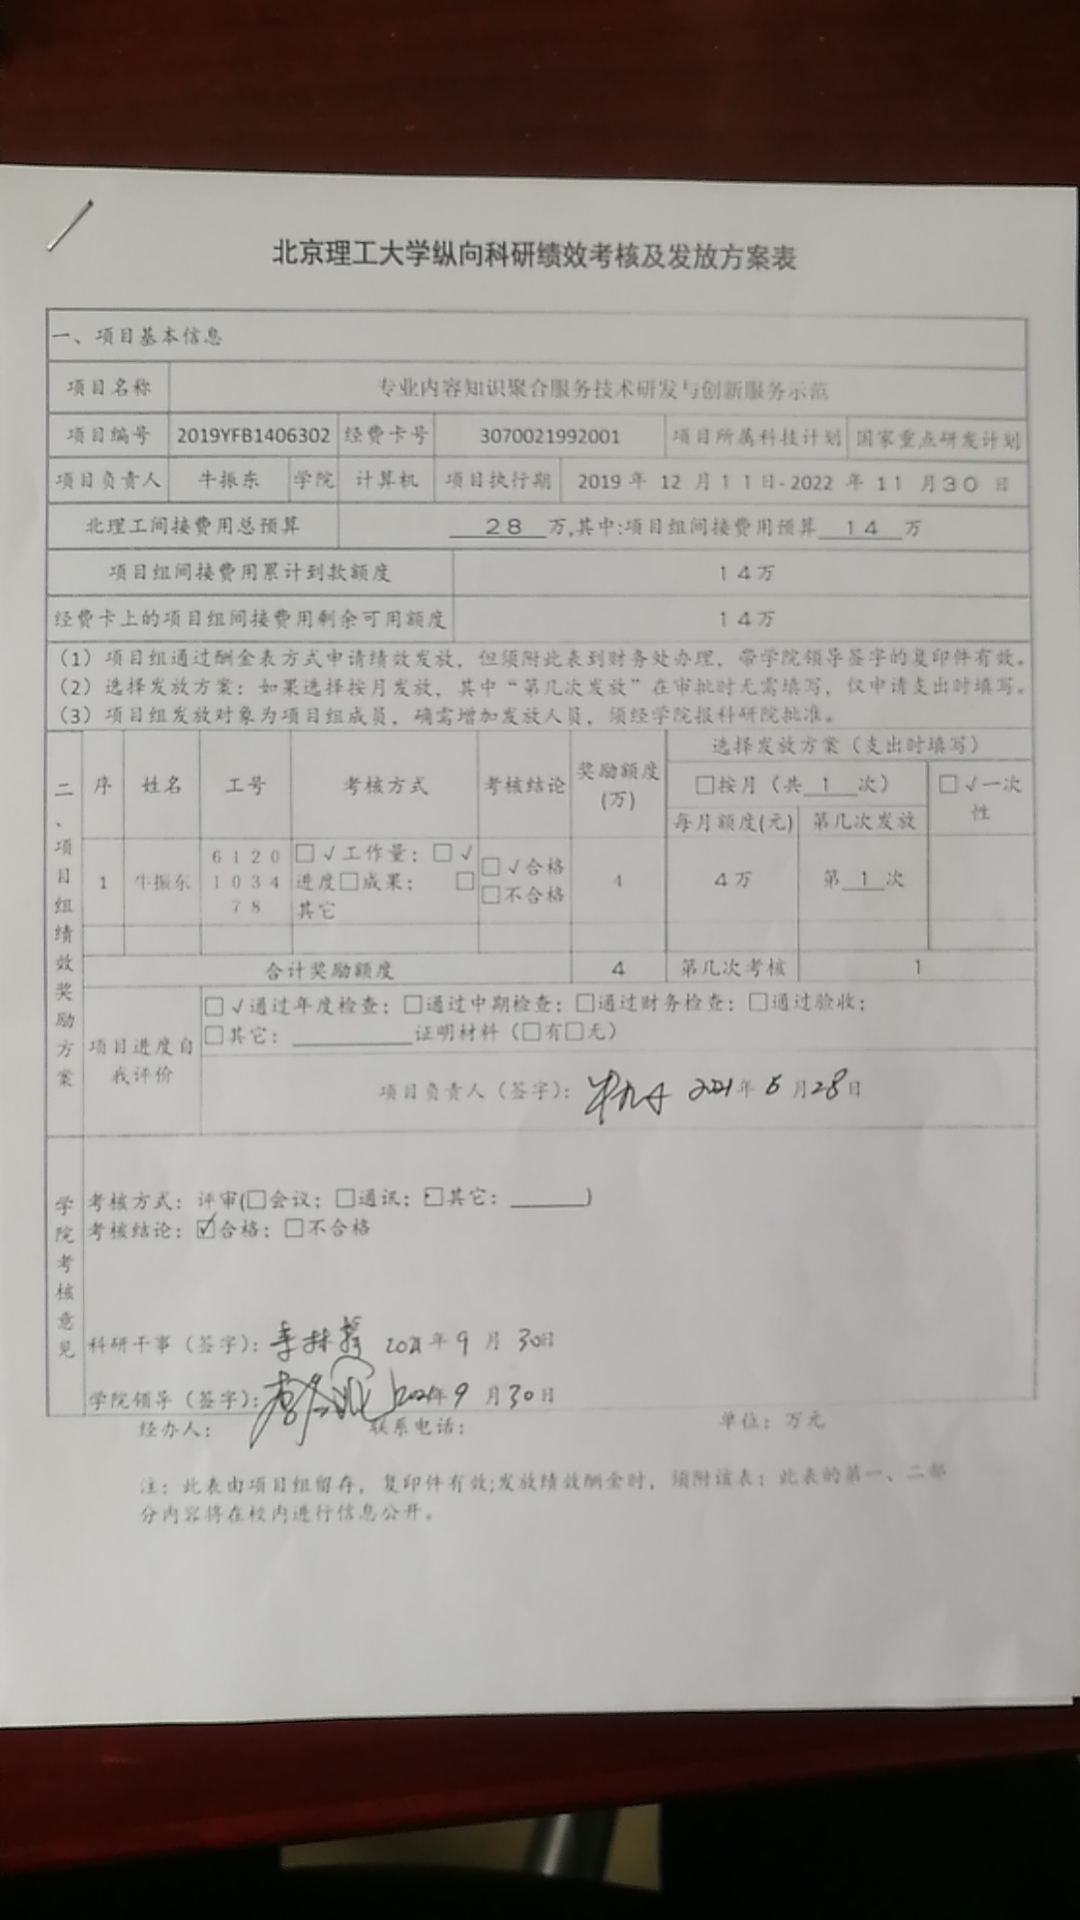 北京理工大学纵向科研绩效考核及发放方案表
一、项目基本信息
项目名称 专业内容知识聚合服务技术研发与创新服务示范
项目编号 2019YFB1406302 经费卡号 3070021992001 项目所属科技计划 国家重点研发计划
项目负责人 牛振东 学院 计算机 项目执行期 2019 年 12 月 11日-2022 年 11 月30 日
北理工间接费用总预算 28 万,其中:项目组间接费用预算 14 万
项目组间接费用累计到款额度 14万
经费卡上的项目组间接费用剩余可用额度 14万
（1）项目组通过酬金表方式申请绩效发放，但须附此表到财务处办理，带学院领导签字的复印件有效。
（2）选择发放方案：如果选择按月发放，其中“第几次发放”在审批时无需填写，仅申请支出时填写。
（3）项目组发放对象为项目组成员，确需增加发放人员，须经学院报科研院批准。
二、项目组绩效奖励方案
序 姓名 工号 考核方式 考核结论 奖励额度(万) 选择发放方案（支出时填写）
□按月（共 1 次） □√一次性
每月额度(元) 第几次发放
1 牛振东 6120103478 □√工作量；□√进度□成果；□其它 □√合格 □不合格 4 4万 第 1 次
合计奖励额度 4 第几次考核 1
项目进度自我评价
□√通过年度检查；□通过中期检查；□通过财务检查；□通过验收；
□其它：________证明材料（□有□无）
项目负责人（签字）： 2021年 5 月28日
学院考核意见
考核方式：评审(□会议；□通讯；□其它：______)
考核结论：☑合格；□不合格
科研干事（签字）： 2021年 9 月 30日
学院领导（签字）： 2021年 9 月30日
经办人： 联系电话： 单位：万元
注：此表由项目组留存，复印件有效;发放绩效酬金时，须附该表；此表的第一、二部
分内容将在校内进行信息公开。